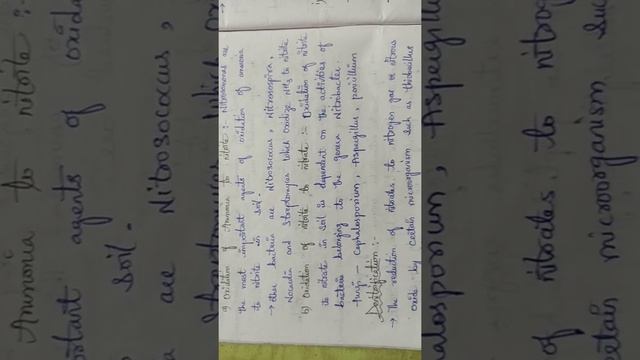 a) Oxidation of Ammonia to nitrite :- Nitrosomonas are
the most important agents of oxidation of ammonia
to nitrite in soil.
→ Other bacteria are Nitrosococcus, Nitrosospira,
Nocardia and Streptomyces which oxidize NH3 to nitrite
b) Oxidation of nitrite to nitrate :- Oxidation of nitrite
to nitrate in soil is dependent on the activities of
bacteria belonging to the genera Nitrobacter.
fungi - Cephalosporium, Aspergillus, penicillium
Denitrification :-
→ The reduction of nitrates to nitrogen gas or nitrous
oxide by certain microorganism such as thiobacillus